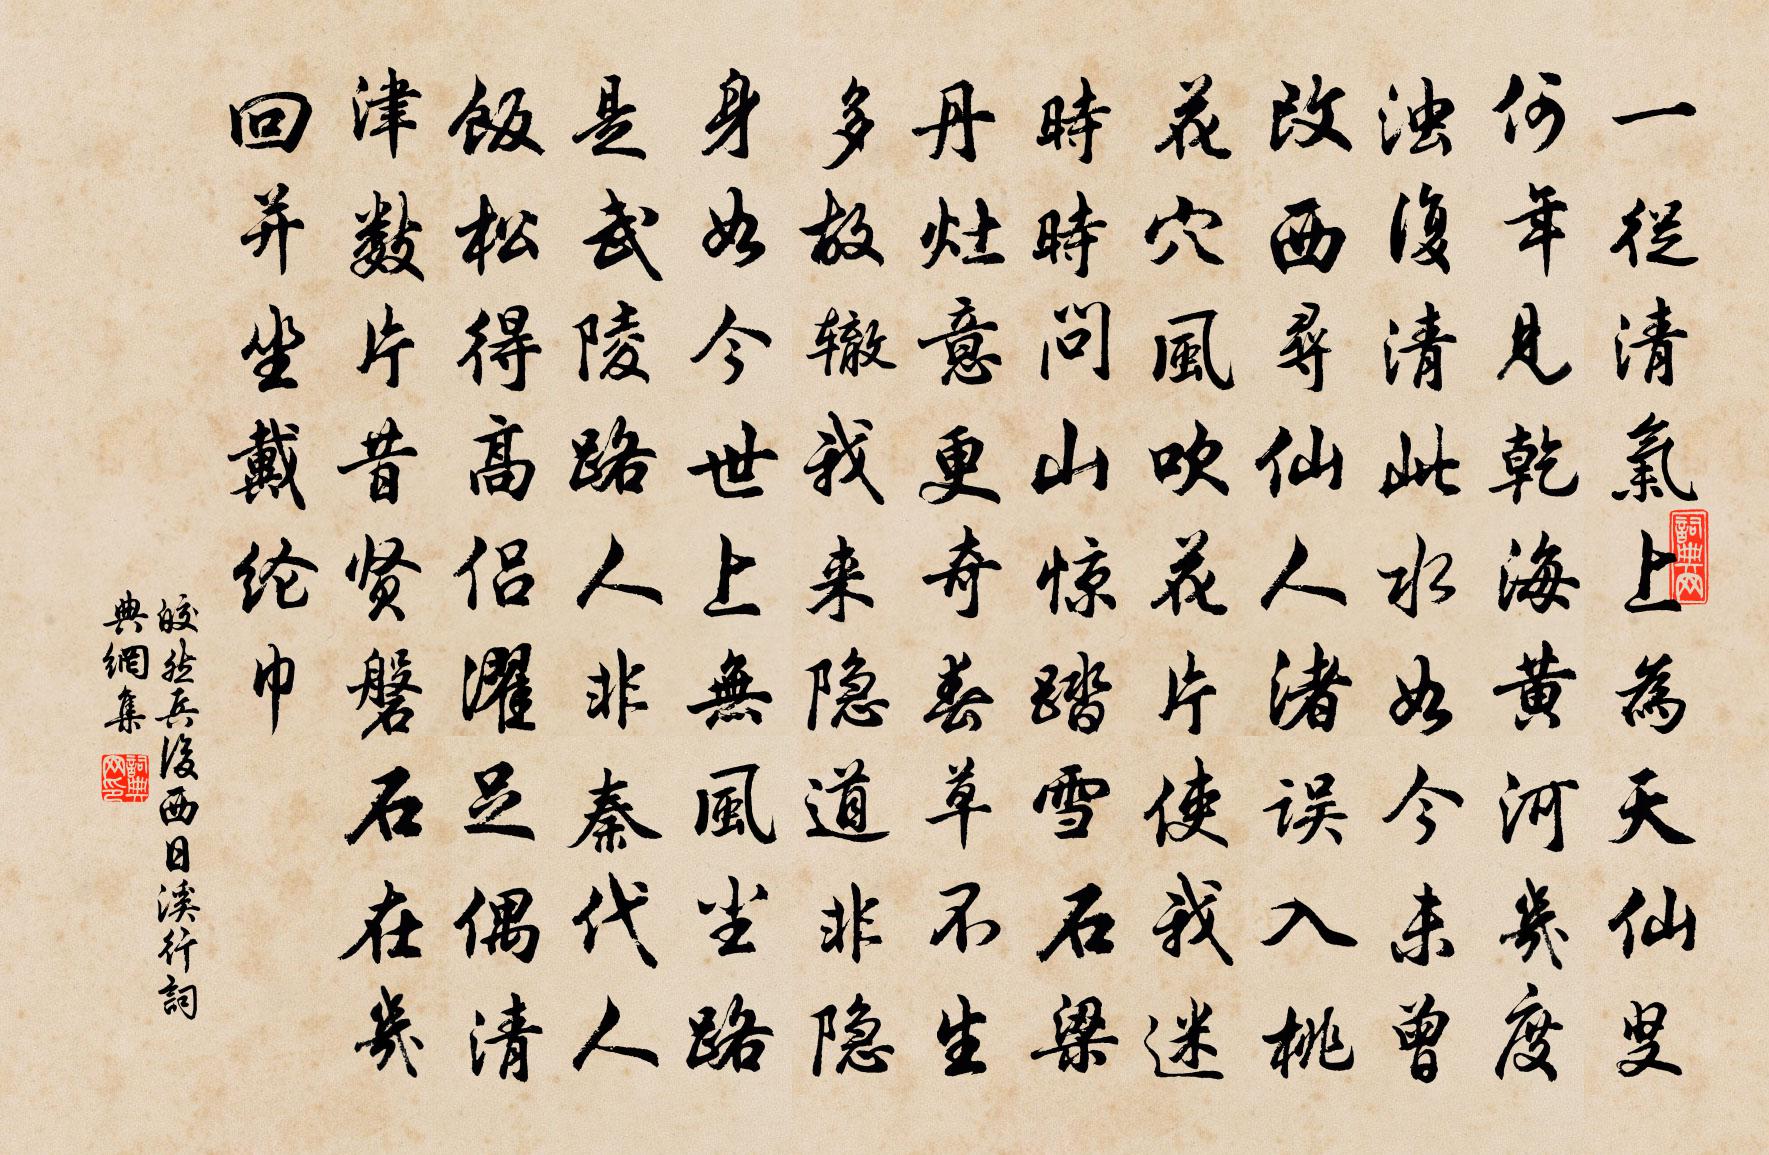 一從清氣上為天仙叟
何年見乾海黄河幾度
浊復清此水如今未曾
改西尋仙人渚误入桃
花穴風吹花片使我迷
時時問山惊踏雪石梁
丹灶意更奇春草不生
多故辙我来隐道非隐
身如今世上無風尘路
是武陵路人非秦代人
飯松得高侣濯足偶清
津數片昔贤磐石在幾
回并坐戴纶巾
皎然兵後西日溪行詞
典網集
詞典网
詞典网印